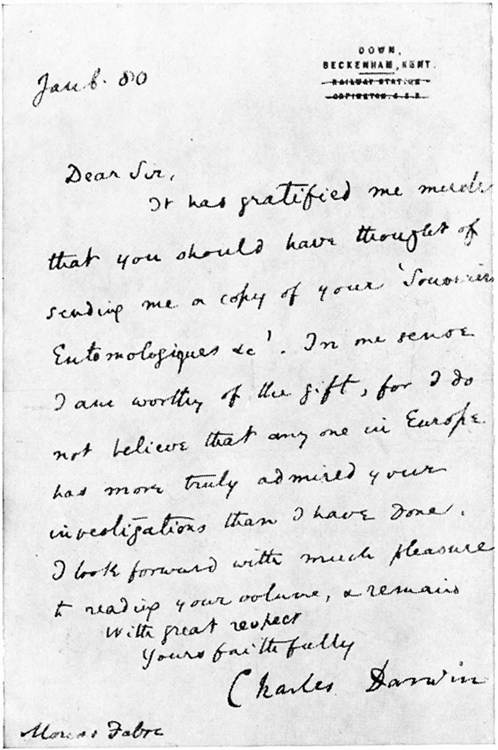 DOWN,
BECKENHAM, KENT.
RAILWAY STATION
ORPINGTON. S.E.R.
Jan 6. 80
Dear Sir,
It has gratified me much
that you should have thought of
sending me a copy of your 'Souvenirs
Entomologiques &c'. In one sense
I am worthy of the gift, for I do
not believe that any one in Europe
has more truly admired your
investigations than I have done.
I look forward with much pleasure
to reading your volume, & remain
With great respect
Yours faithfully
Charles Darwin
Mons. Fabre